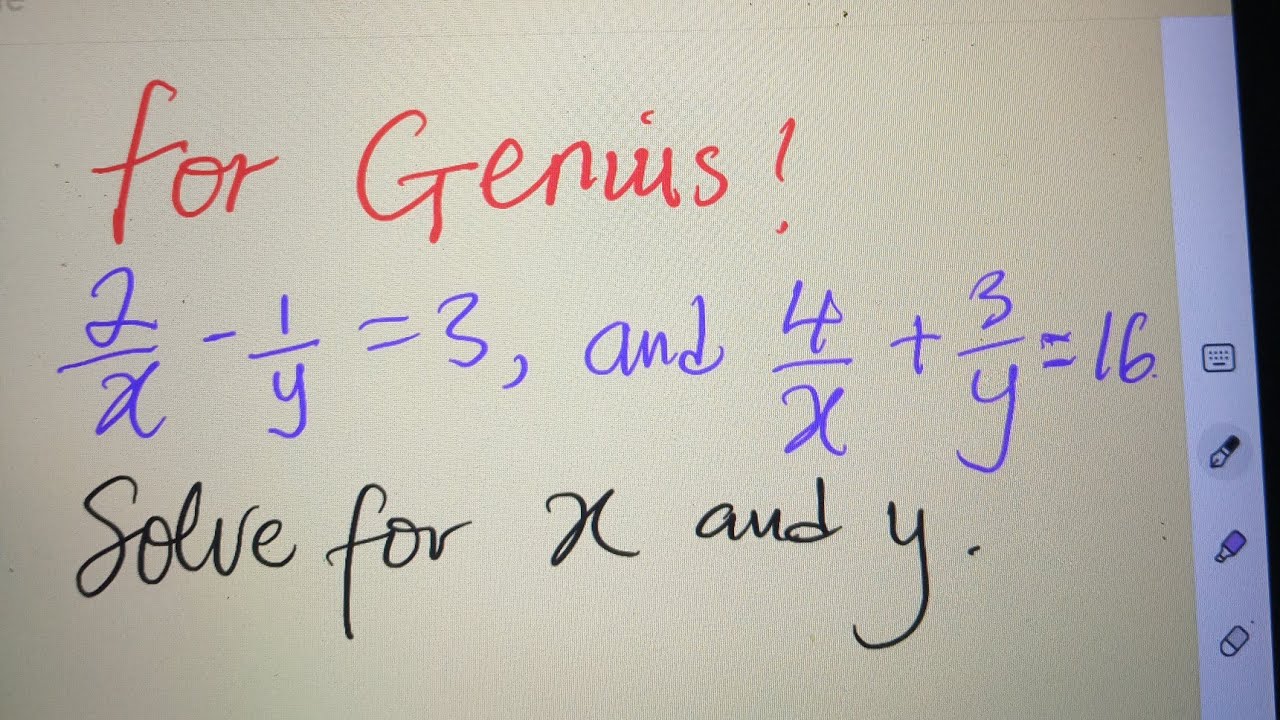 for Genius!
2/x - 1/y = 3, and 4/x + 3/y = 16.
Solve for x and y.